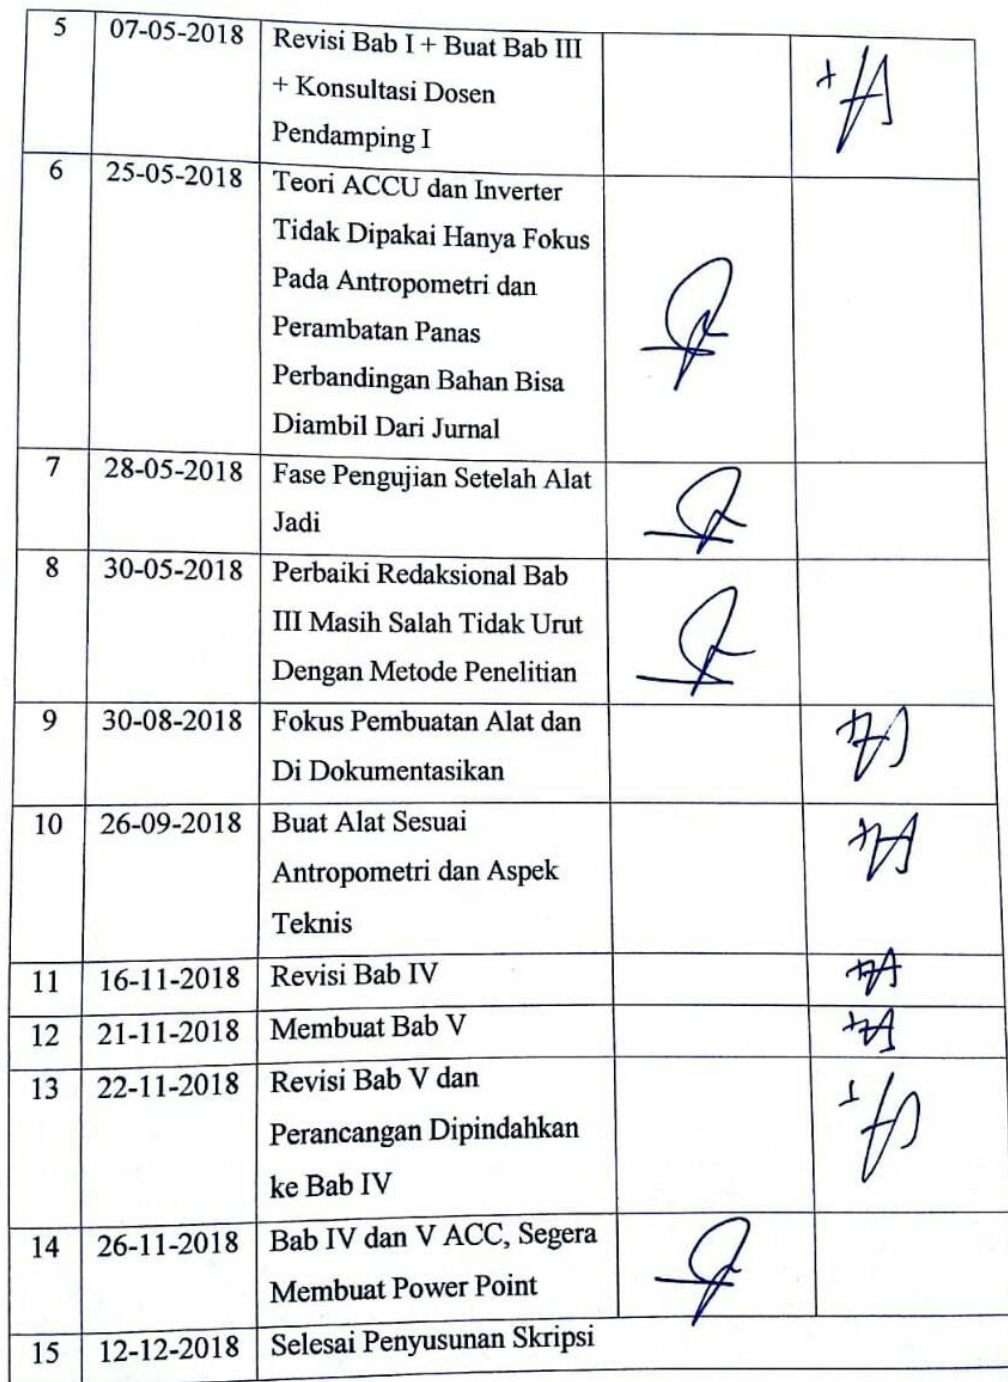 5 07-05-2018 Revisi Bab I + Buat Bab III
+ Konsultasi Dosen
Pendamping I
6 25-05-2018 Teori ACCU dan Inverter
Tidak Dipakai Hanya Fokus
Pada Antropometri dan
Perambatan Panas
Perbandingan Bahan Bisa
Diambil Dari Jurnal
7 28-05-2018 Fase Pengujian Setelah Alat
Jadi
8 30-05-2018 Perbaiki Redaksional Bab
III Masih Salah Tidak Urut
Dengan Metode Penelitian
9 30-08-2018 Fokus Pembuatan Alat dan
Di Dokumentasikan
10 26-09-2018 Buat Alat Sesuai
Antropometri dan Aspek
Teknis
11 16-11-2018 Revisi Bab IV
12 21-11-2018 Membuat Bab V
13 22-11-2018 Revisi Bab V dan
Perancangan Dipindahkan
ke Bab IV
14 26-11-2018 Bab IV dan V ACC, Segera
Membuat Power Point
15 12-12-2018 Selesai Penyusunan Skripsi